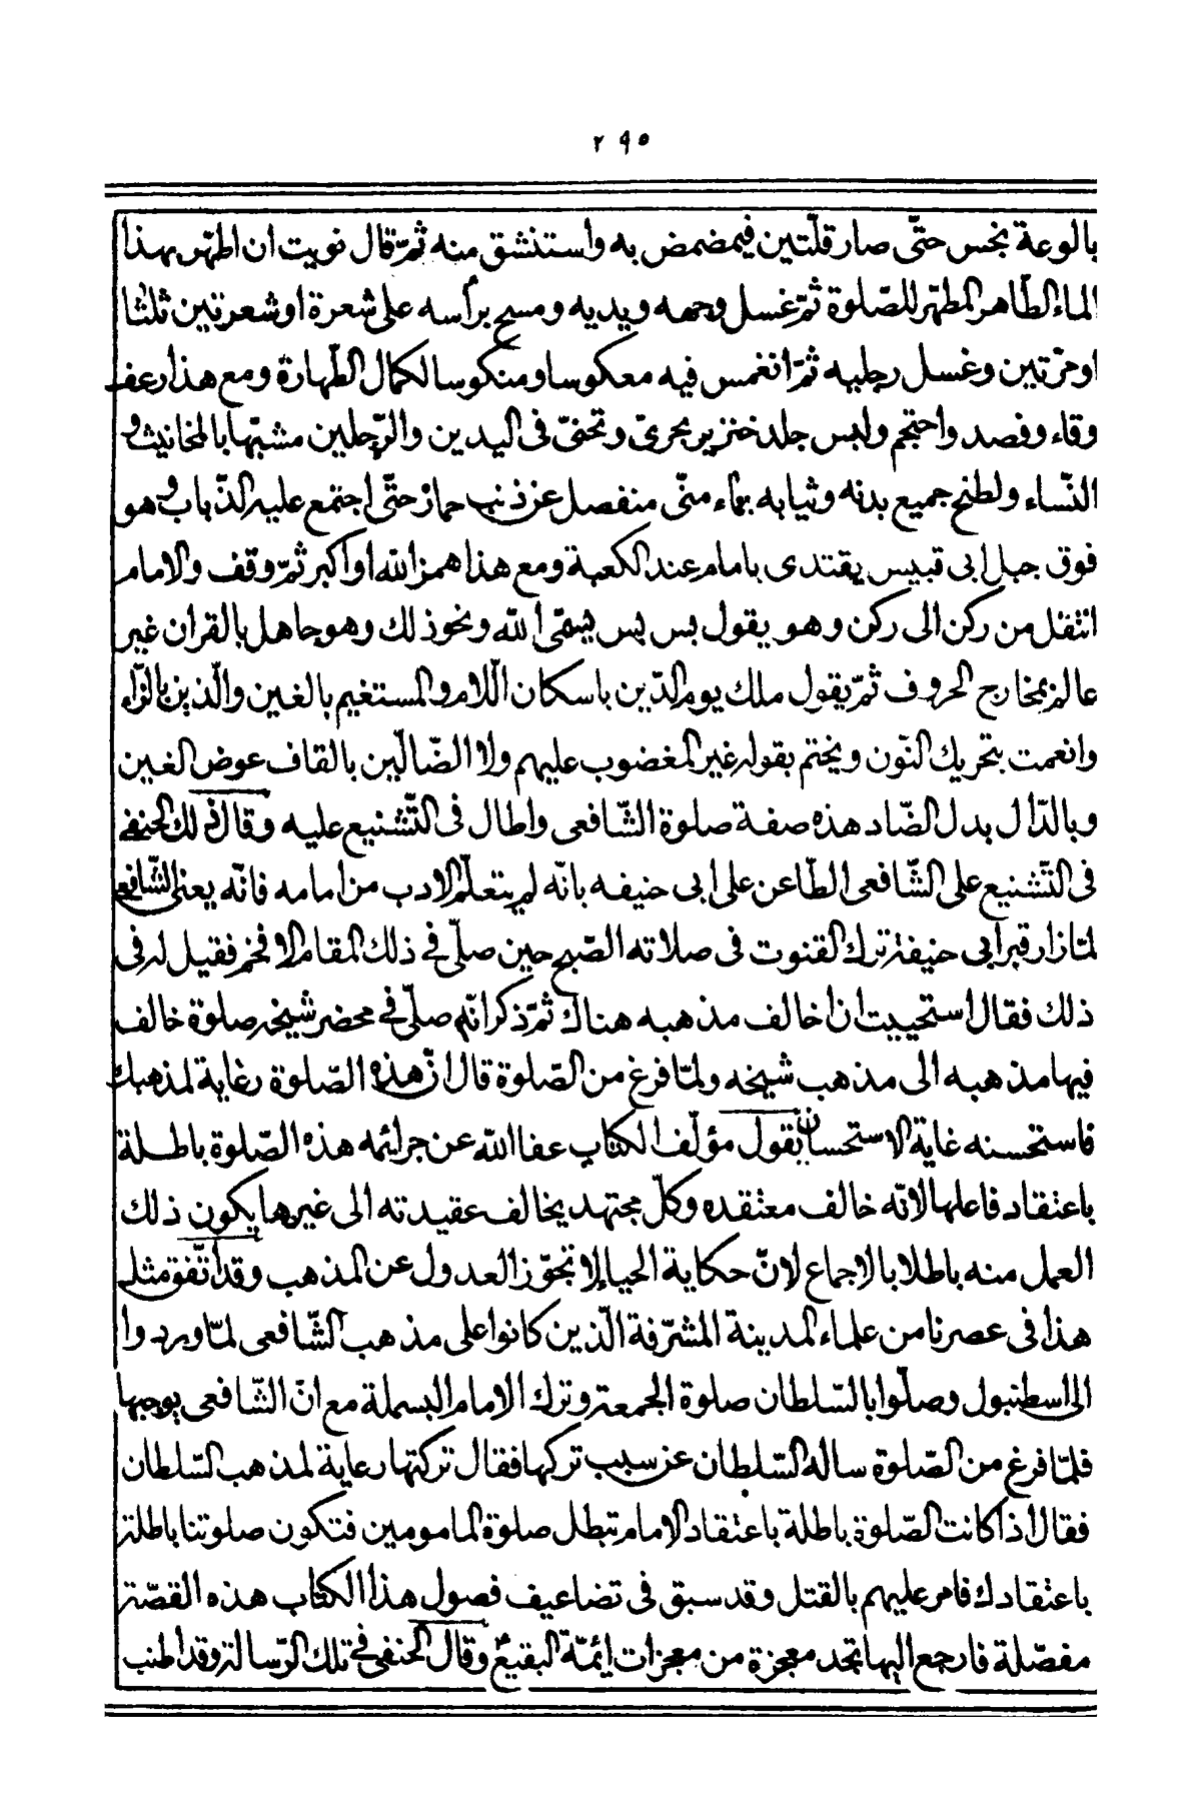 ٢٩٥
بالوعة نجس حتّى صار قلّتين فيمضمض به واستنشق منه ثمّ قال نويت ان اطهّر بهذا
الماء الطّاهر المطهّر للصّلوة ثمّ غسل وجهه ويديه ومسح برأسه على شعرة او شعرتين ثلثا
او مرّتين وغسل رجليه ثمّ انغمس فيه معكوسا ومنكوسا لكمال الطّهارة ومع هذا رعف
وقاء وفصد واحتجم ولبس جلد خنزير بحرىّ وتحنّى فى اليدين والرّجلين مشبّها بالمخانيث و
النّساء ولطخ جميع بدنه وثيابه بماء منّى منفصل عن ذنب حمار حتّى اجتمع عليه الذّباب وهو
فوق جبل ابى قبيس يقتدى بامام عند الكعبة ومع هذا همز الله او اكبر ثمّ وقف والامام
انتقل من ركن الى ركن وهو يقول بس بس يسمّى الله ونحو ذلك وهو جاهل بالقران غير
عالم بمخارج الحروف ثمّ يقول ملك يوم الدّين باسكان اللّام والمستغيم بالغين والّذين بالزّاء
وانعمت بتحريك النّون ويختم بقوله غير المغضوب عليهم ولا الضّالّين بالقاف عوض الغين
وبالدّال بدل الضّاد هذه صفة صلوة الشّافعى واطال فى التّشنيع عليه وقال ذلك الحنفى
فى التّشنيع على الشّافعى الطّاعن على ابى حنيفه بانّه لم يتعلّم الادب من امامه فانّه يعنى الشّافعى
لمّا زار قبر ابى حنيفة ترك القنوت فى صلاته الصّبح حين صلّى فى ذلك المقام الافخم فقيل له فى
ذلك فقال استحييت ان اخالف مذهبه هناك ثمّ ذكر انّه صلّى فى محضر شيخه صلوة خالف
فيها مذهبه الى مذهب شيخه ولمّا فرغ من الصّلوة قال انّ هذه الصّلوة رغاية لمذهبك
فاستحسنه غاية الاستحسان يقول مؤلّف الكتاب عفا الله عن جرائمه هذه الصّلوة باطلة
باعتقاد فاعلها لانّه خالف معتقده وكلّ مجتهد يخالف عقيدته الى غيرها يكون ذلك
العمل منه باطلا بالاجماع لانّ حكاية الحيا لا تجوّز العدول عن المذهب وقد اتّفق مثل
هذا فى عصرنا من علماء المدينة المشرّفة الّذين كانوا على مذهب الشّافعى لمّا وردوا
الى اسطنبول وصلّوا بالسّلطان صلوة الجمعة وترك الامام البسملة مع انّ الشّافعى يوجبها
فلمّا فرغ من الصّلوة ساله السّلطان عن سبب تركها فقال تركتها رعاية لمذهب السّلطان
فقال اذا كانت الصّلوة باطلة باعتقاد الامام تبطل صلوة المامومين فتكون صلوتنا باطلة
باعتقادك فامر عليهم بالقتل وقد سبق فى تضاعيف فصول هذا الكتاب هذه القصّة
مفصّلة فارجع اليها تجد معجزة من معجزات ائمّة البقيع وقال الحنفى فى تلك الرّسالة وقد اطنب